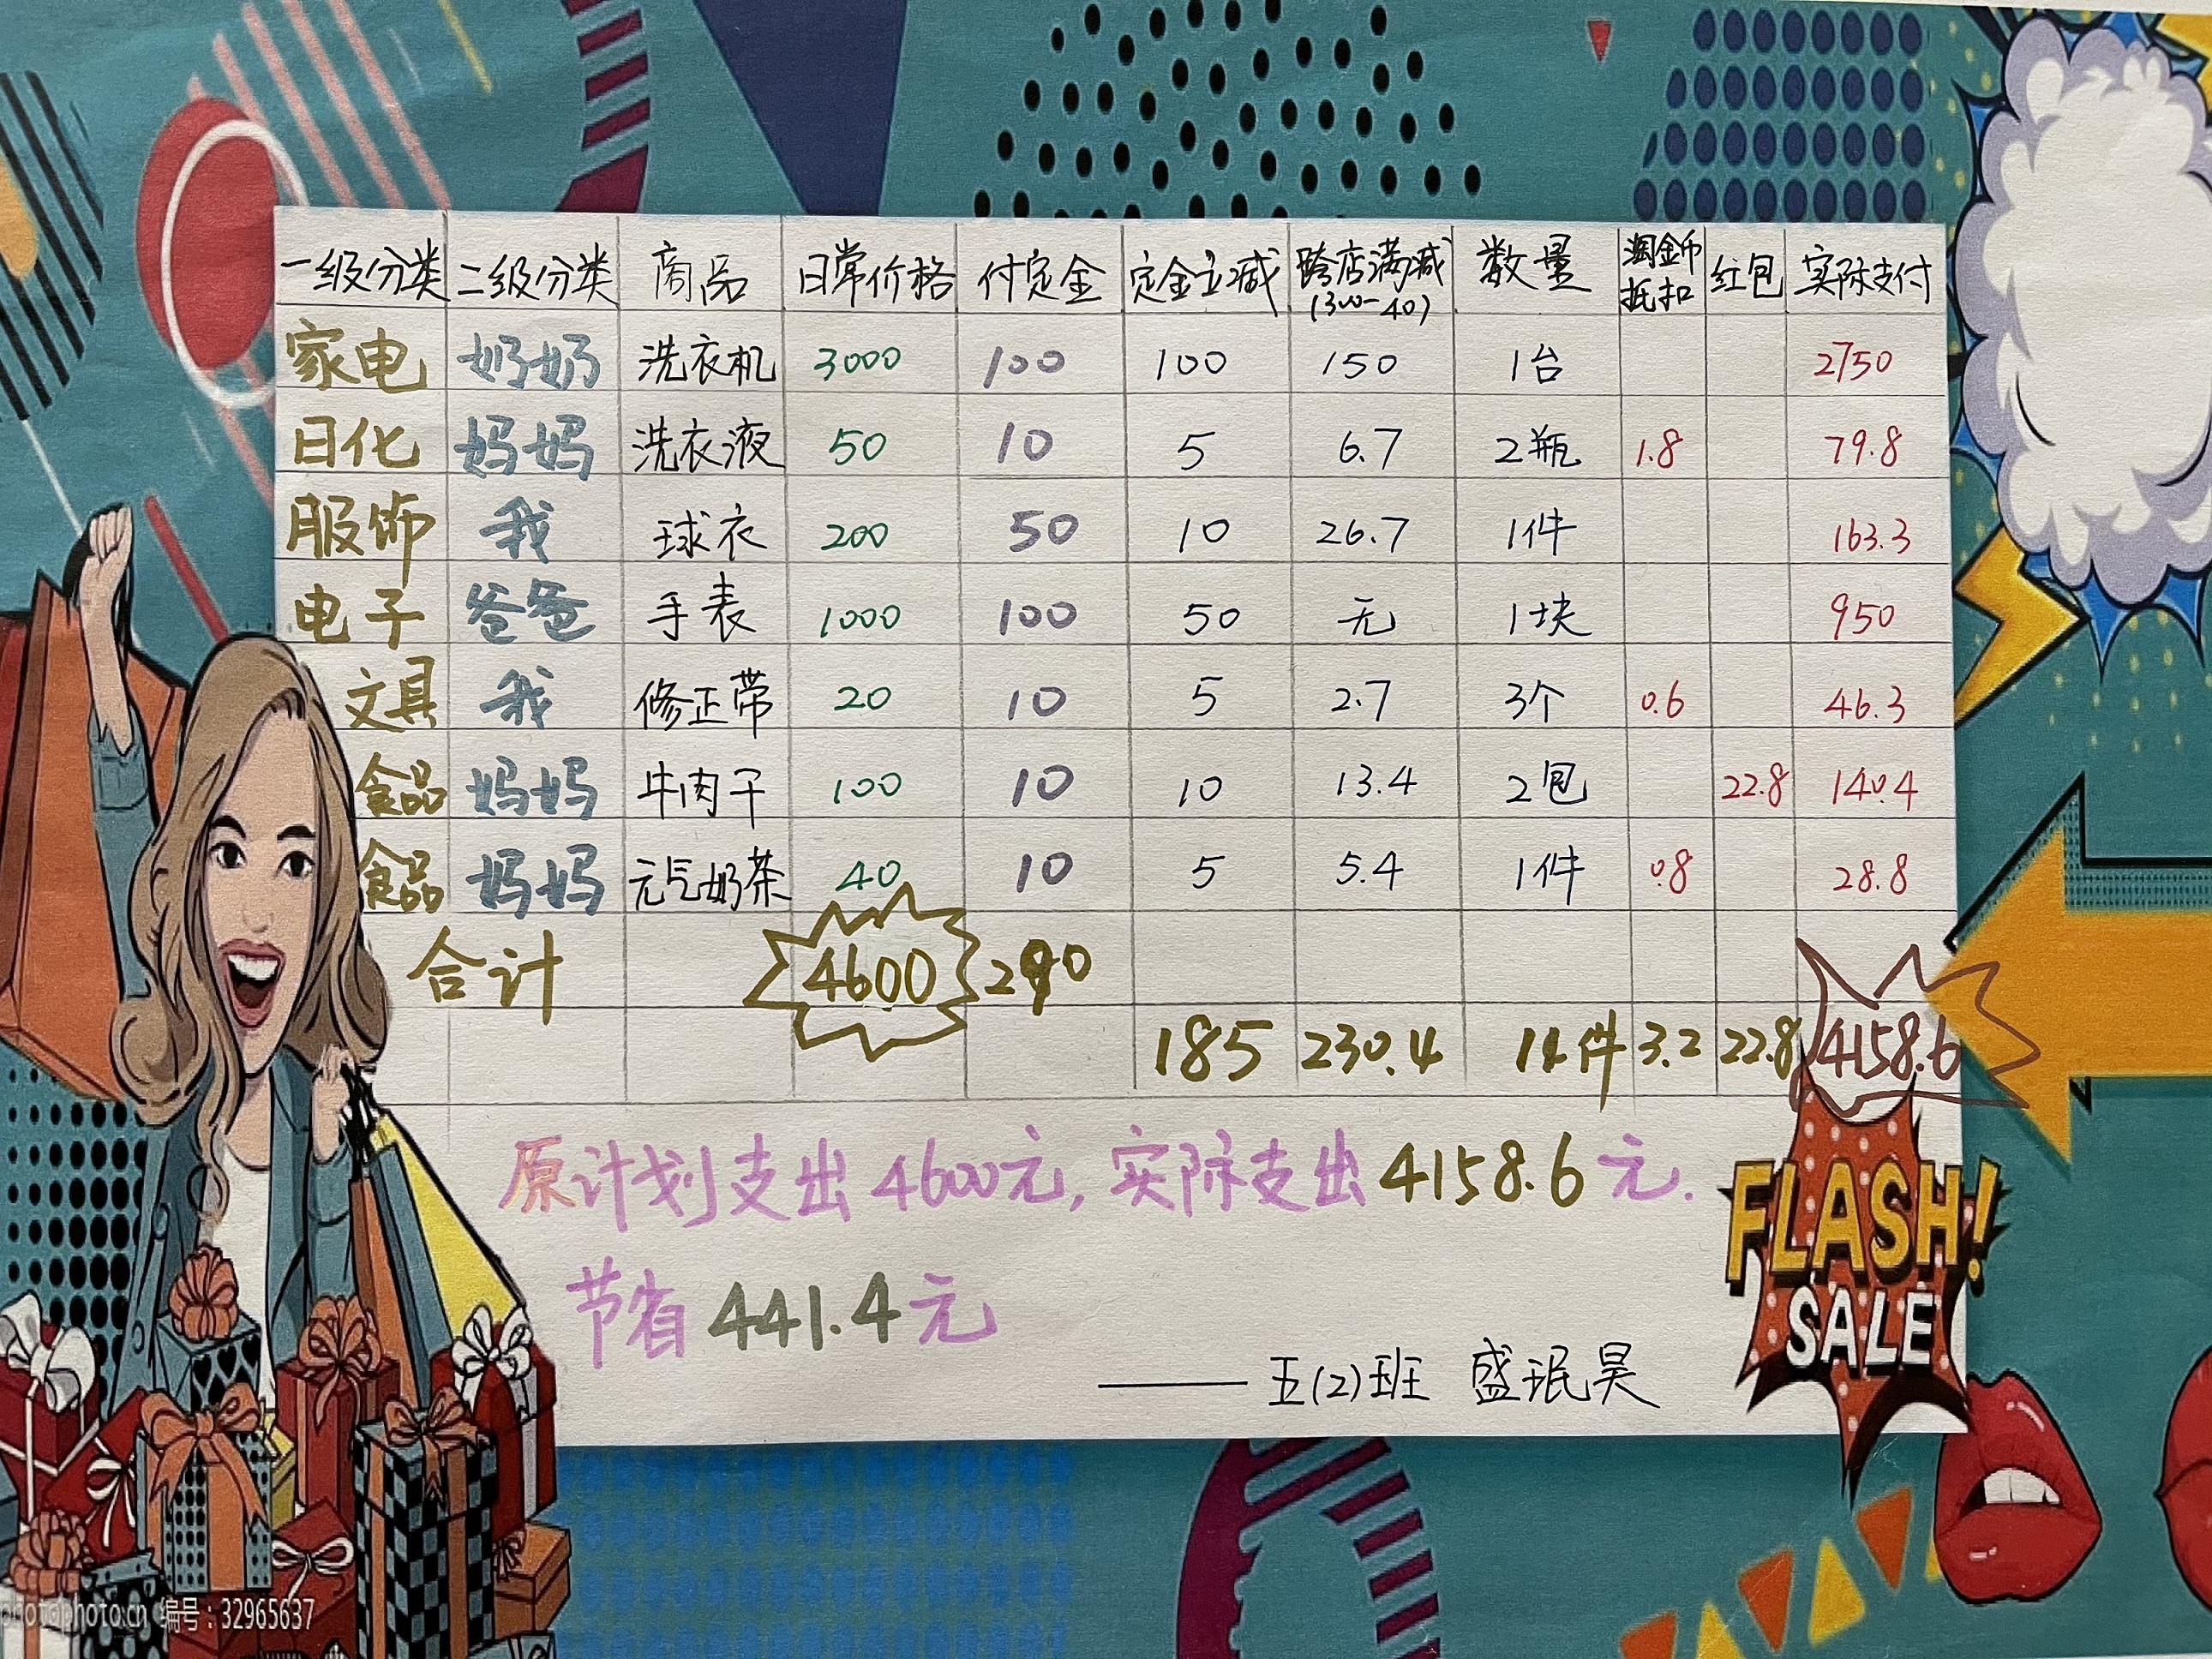 一级分类 二级分类 商品 日常价格 付定金 定金立减 跨店满减(300-40) 数量 淘金币抵扣 红包 实际支付
家电 奶奶 洗衣机 3000 100 100 150 1台 2750
日化 妈妈 洗衣液 50 10 5 6.7 2瓶 1.8 79.8
服饰 我 球衣 200 50 10 26.7 1件 163.3
电子 爸爸 手表 1000 100 50 无 1块 950
文具 我 修正带 20 10 5 2.7 3个 0.6 46.3
食品 妈妈 牛肉干 100 10 10 13.4 2包 22.8 140.4
食品 妈妈 元气奶茶 40 10 5 5.4 1件 0.8 28.8
合计 4600 290
185 230.4 11件 3.2 22.8 4158.6
原计划支出4600元,实际支出4158.6元.
节省441.4元
FLASH!
SALE
——五(2)班 盛珉昊
photophoto.cn 编号:32965637